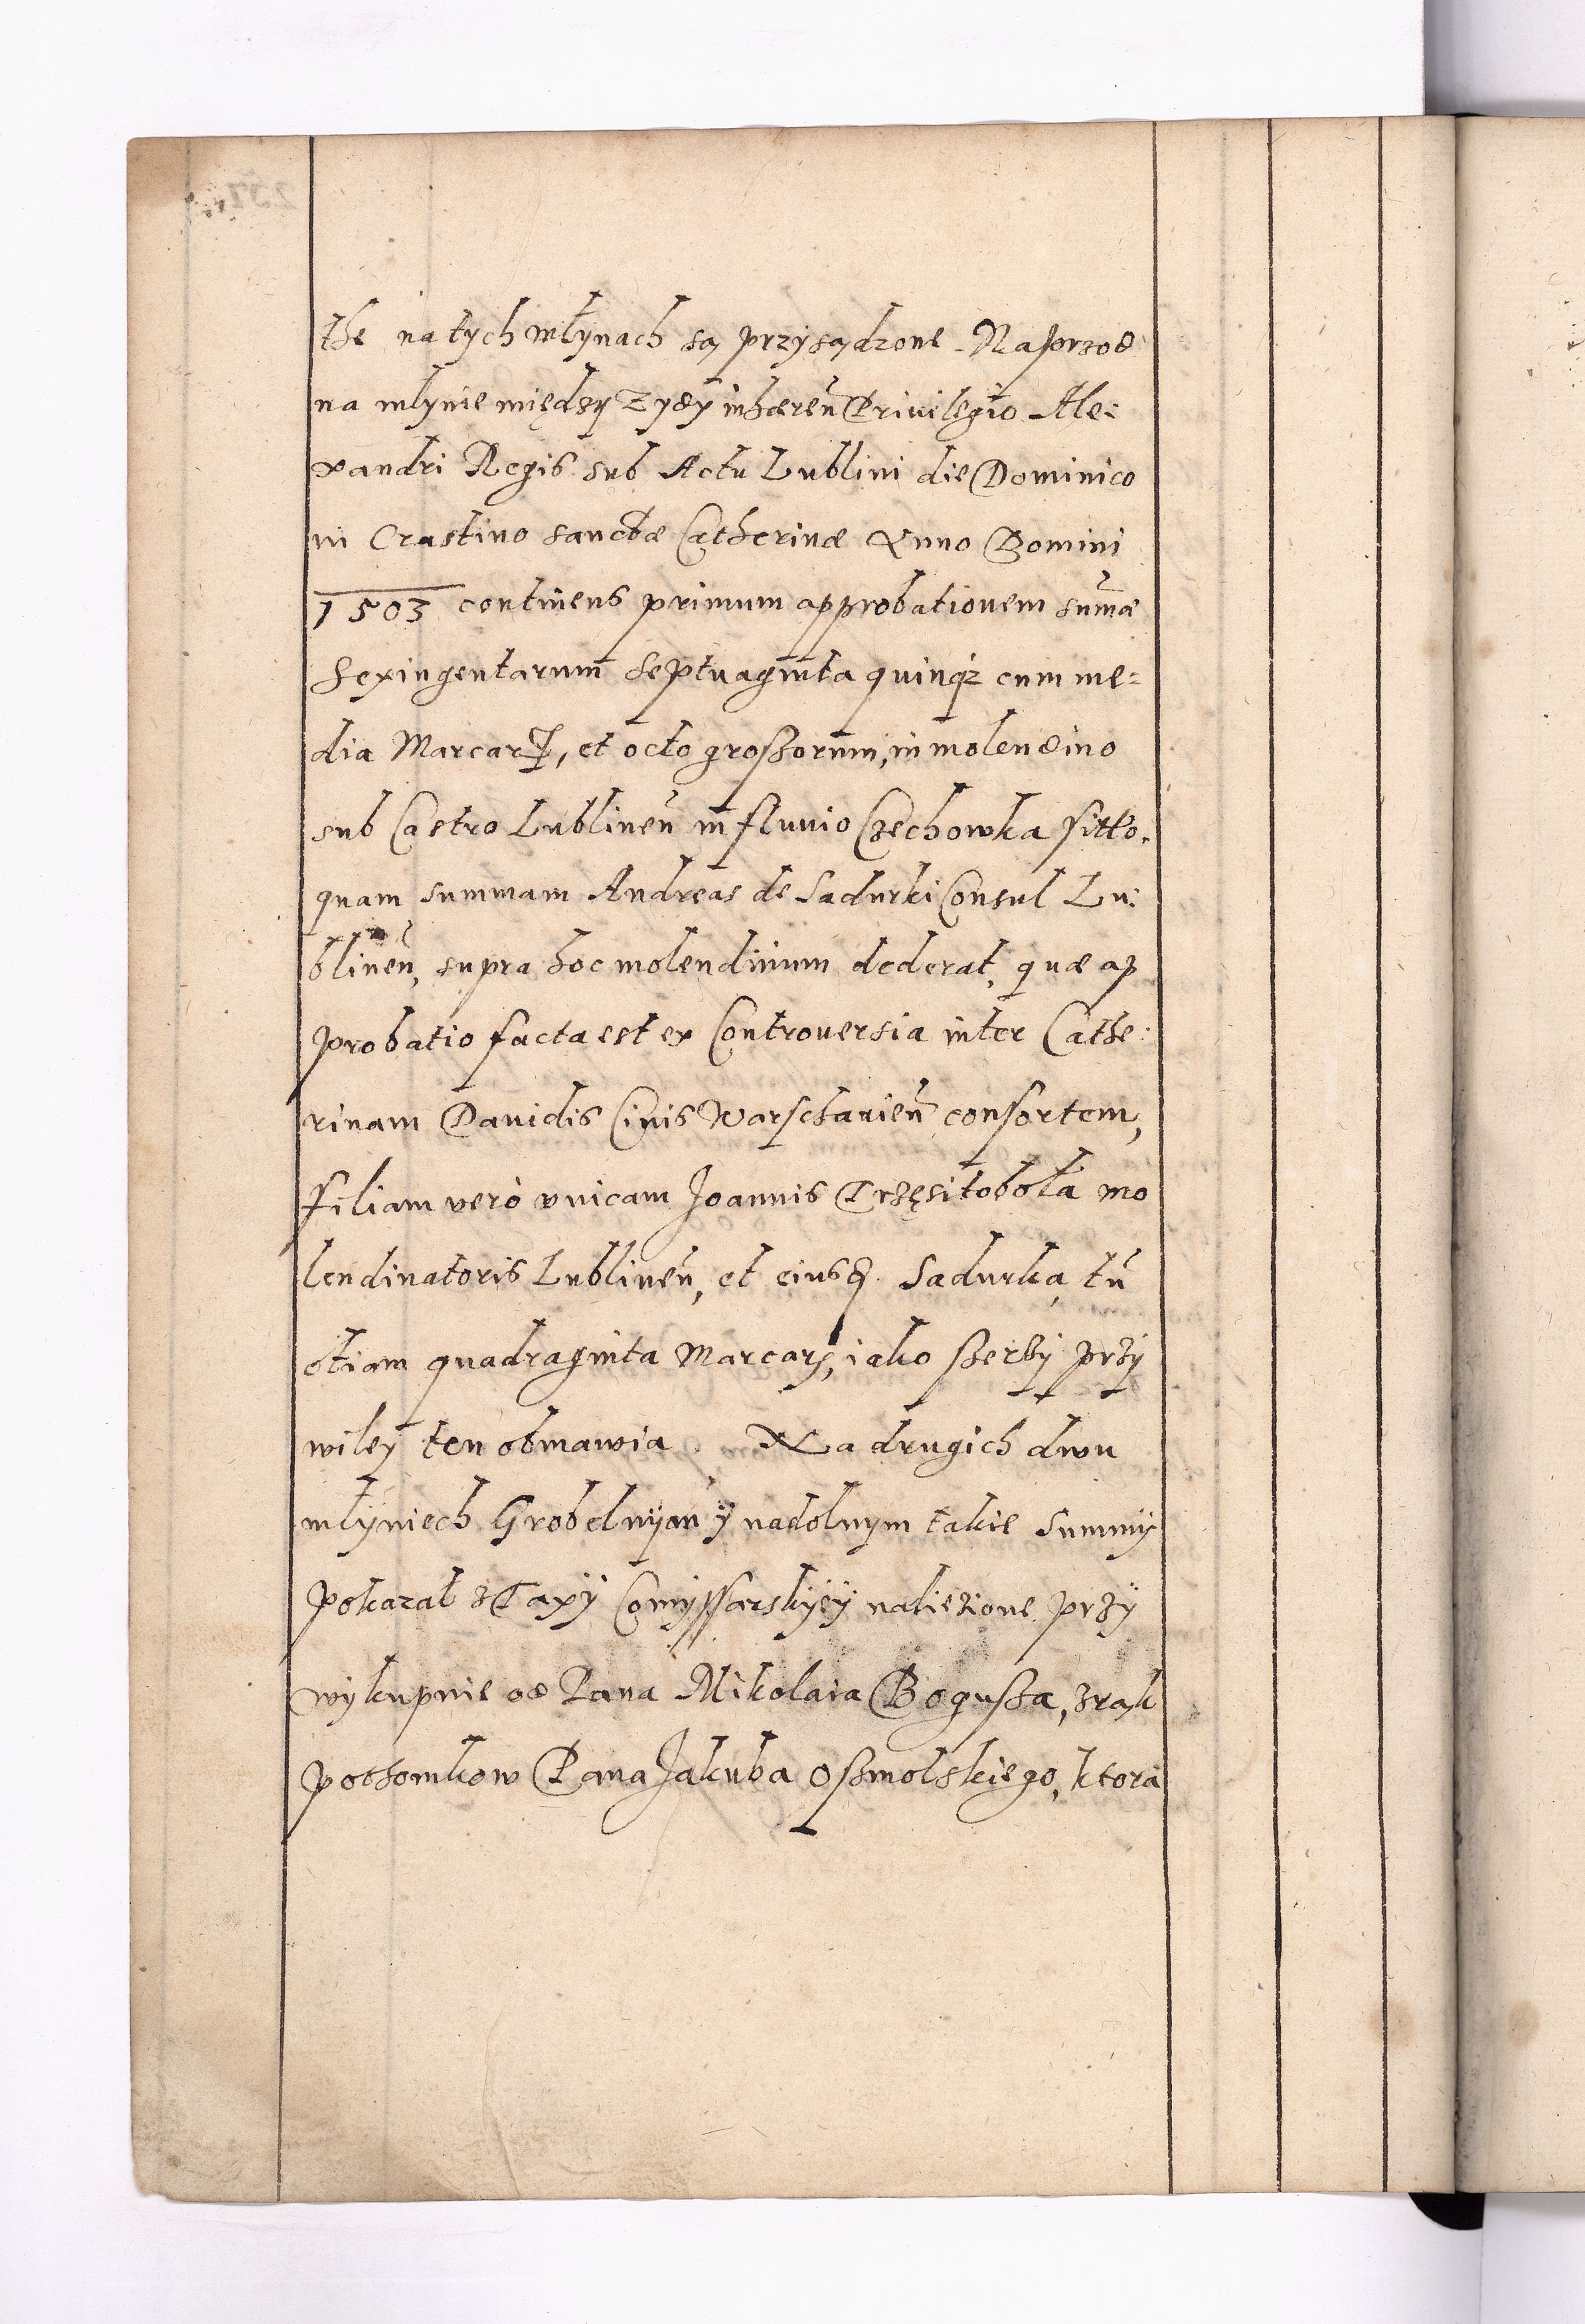 the na tych młynach są przysądzone. Naprzod
na młynie między Zydy inhæren̄ Priuilegio Ale:
xandri Regis sub Actu Lublini die Dominico
in Crastino sanctæ Catherinæ Anno Domini
1503 continens primum approbationem sum̄æ
Sexingentarum septuaginta quinqȝ cum me=
dia Marcarꝝ, et octo großorum, in molendino
sub Castro Lublinen̄ in fluuio Czechowka sitto.
quam summam Andreas de Sadurki Consul Lu:
blinen̄, supra hoc molendinum dederat, quæ ap
probatio facta est ex Controuersia inter Cathe:
rinam Dauidis Ciuis Warschauien̄ consortem,
filiam verò vnicam Joannis Trzęsitoboła mo
lendinatoris Lublinen̄, et eiusd. Sadurka, tū
etiam quadraginta Marcarꝝ, iako szerzy przy
wiley ten obmawia. Na drugich dwu
młyniech Grobelnym y nadolnym takie summy
pokazał z Taxy Comyssarskyey naliezione przy
wykupnie od Pana Mikolaia Bogusza, z rąk
pothomkow Pana Jakuba Oszmolskiego, ktora